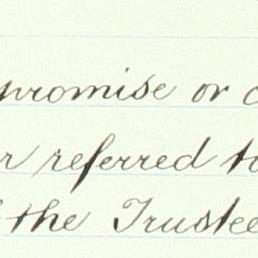 promise or
r referred to
the Trustee